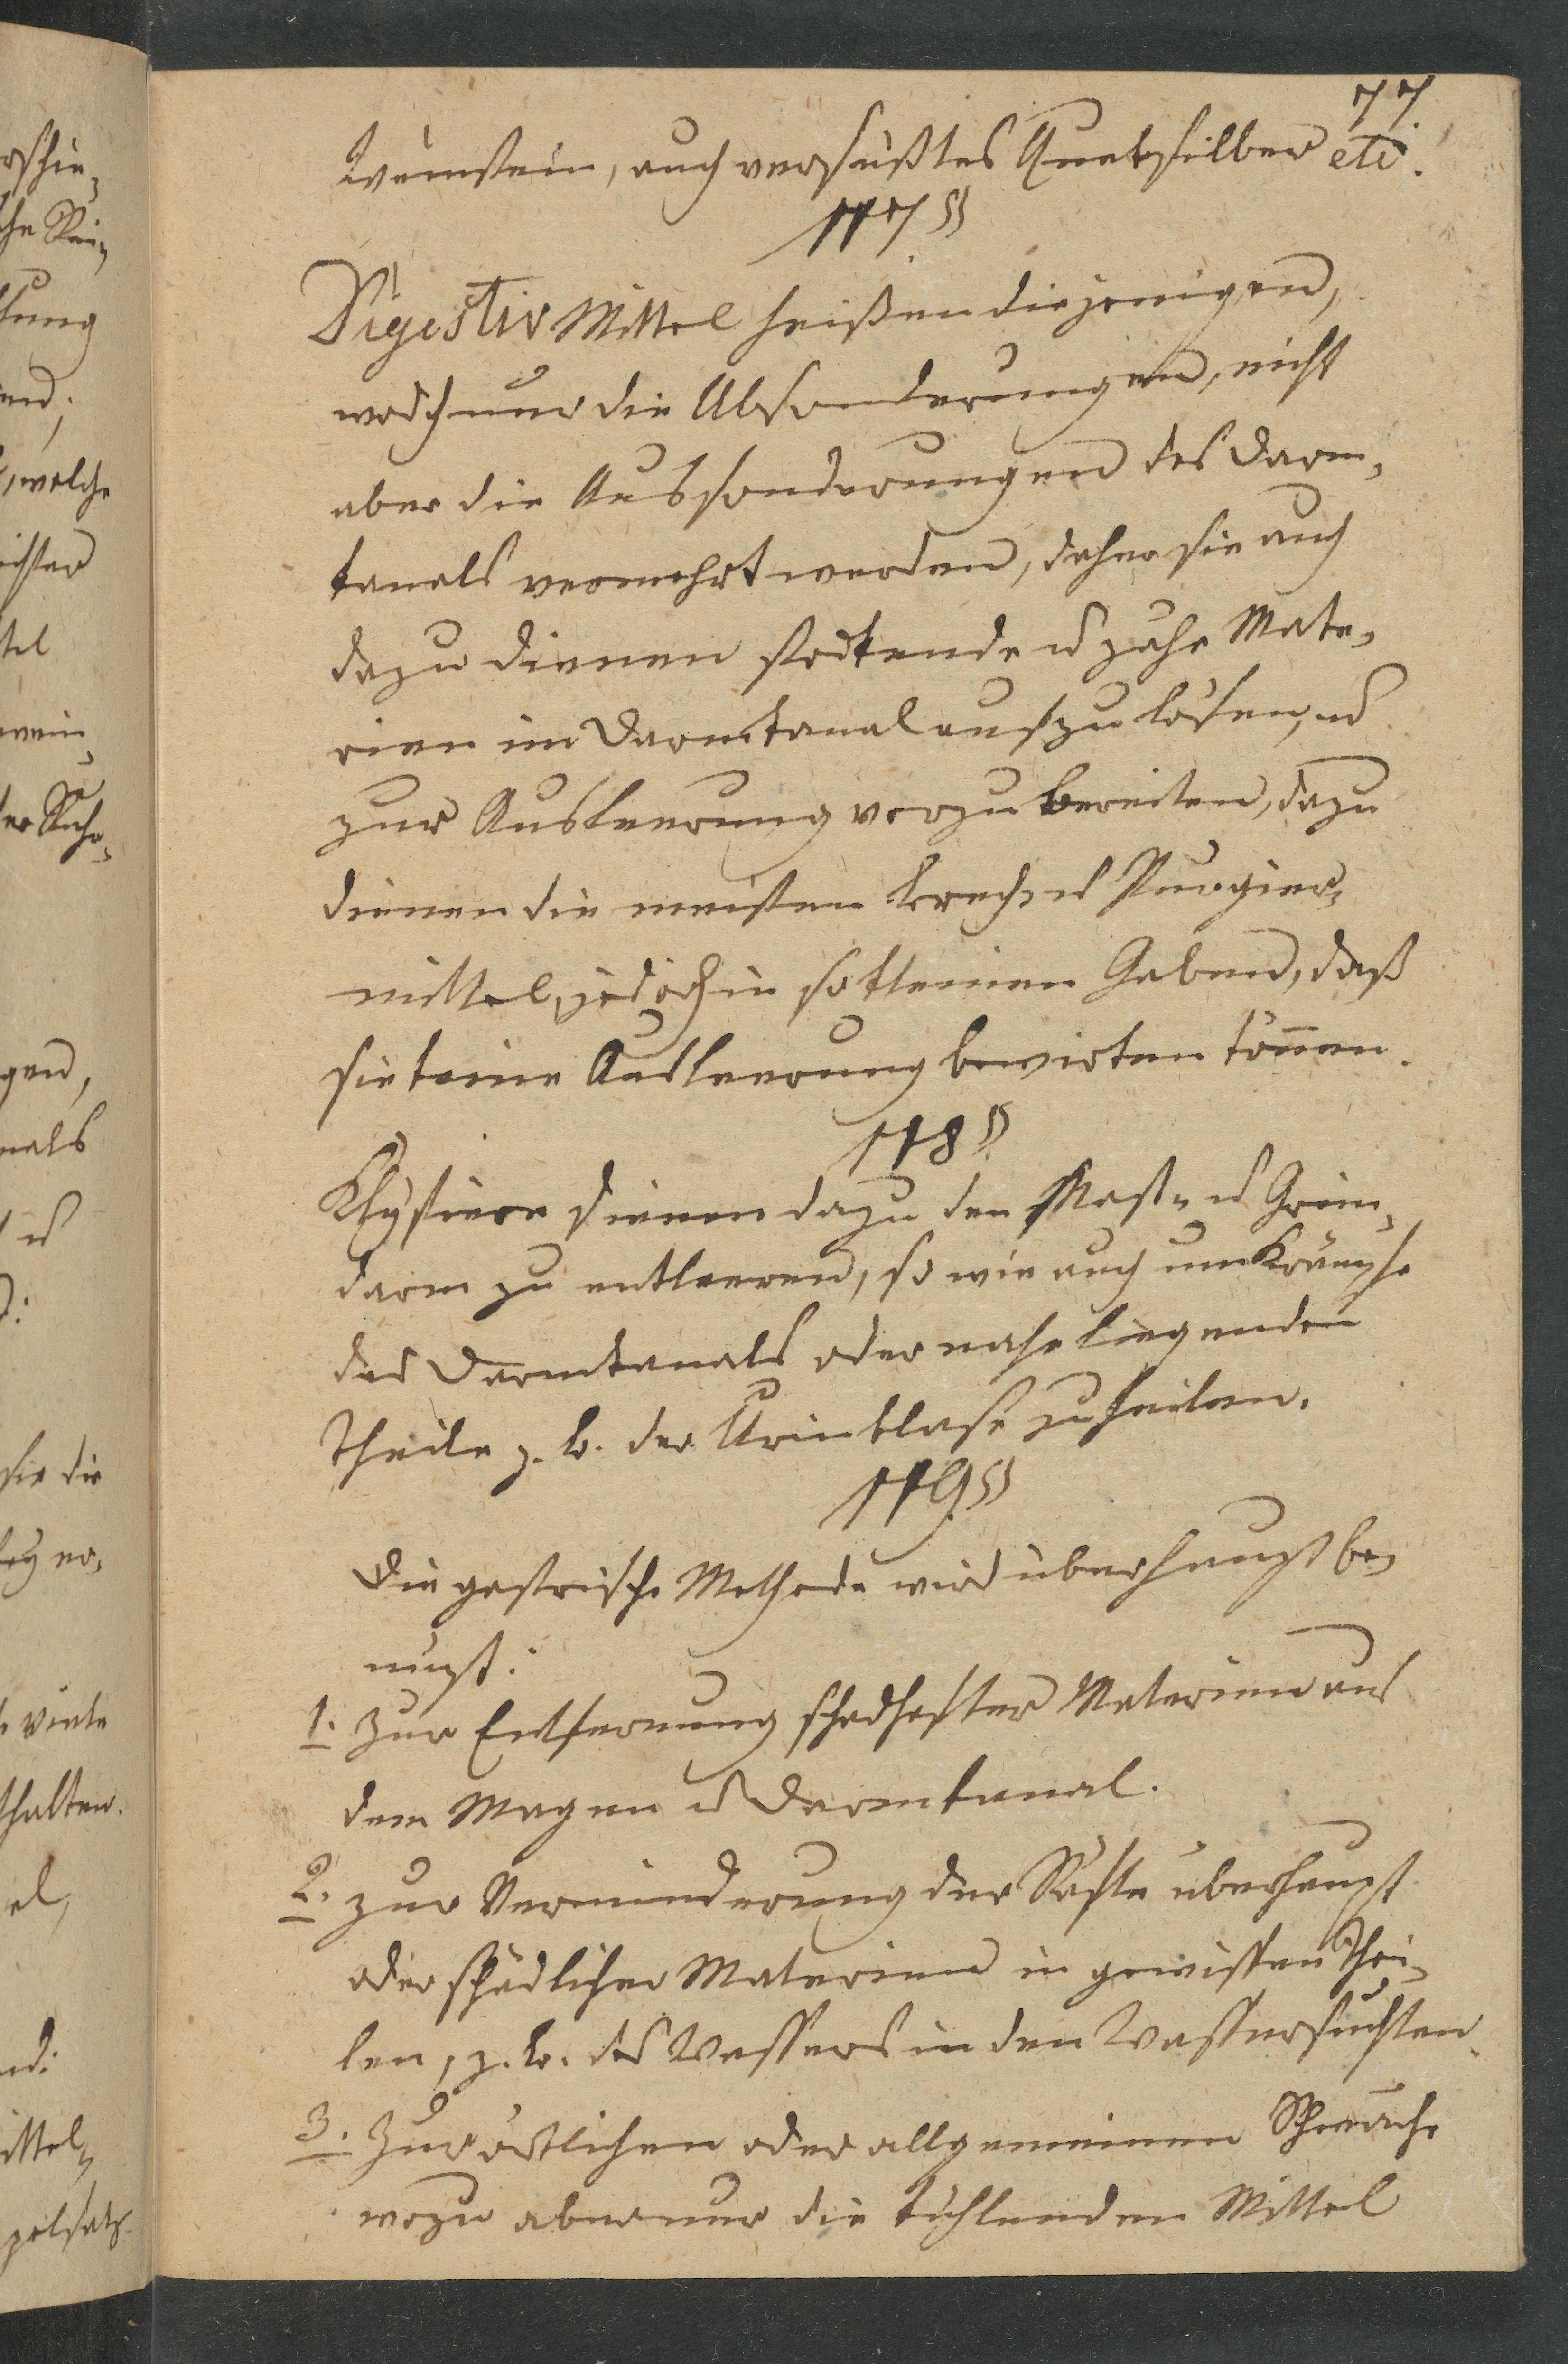 77
Weinstein, auch versüßtes Quecksilber etc.
117 §
Digestiv Mittel heißen diejenigen,
wodch nur die Absonderungen, nicht
aber die Aussonderungen des Darm„
kanals vermehrt werden, daher sie auch
dazu dienen stockende u zähe Mate„
rien im Darmkanal aufzulösen, u
zur Ausleerung vorzubereiten, dazu
dienen die meisten Brech„ u Purgier„
mittel, jedoch in so kleinen Gaben, daß
sie keine Ausleerung bewirken können.
118 §
Klystiere dienen dazu den Mast„ u Grim„
darm zu entleeren, so wie auch um Krämpfe
des Darmkanals oder nahe liegenden
Theile z. B. der Urinblase zu heilen.
119 §
Die gastrische Methode wird überhaupt be„
nuzt:
1. Zur Entfernung schadhafter Materien aus
dem Magen u Darmkanal.
2. zur Verminderung der Säfte überhaupt
oder schädlicher Materien in gewissen Thei„
len, z. B. des Wassers in den Wassersuchten.
3. Zur örtlichen oder allgemeinen Schwäche
wozu aber nur die kühlenden Mittel
rschie„
che Rei„
lung
end;
, welche
ichter
tel
mein„
gen,
nals
u
sie die
ley er„
viele
halten.
el,
nd:
ittel„